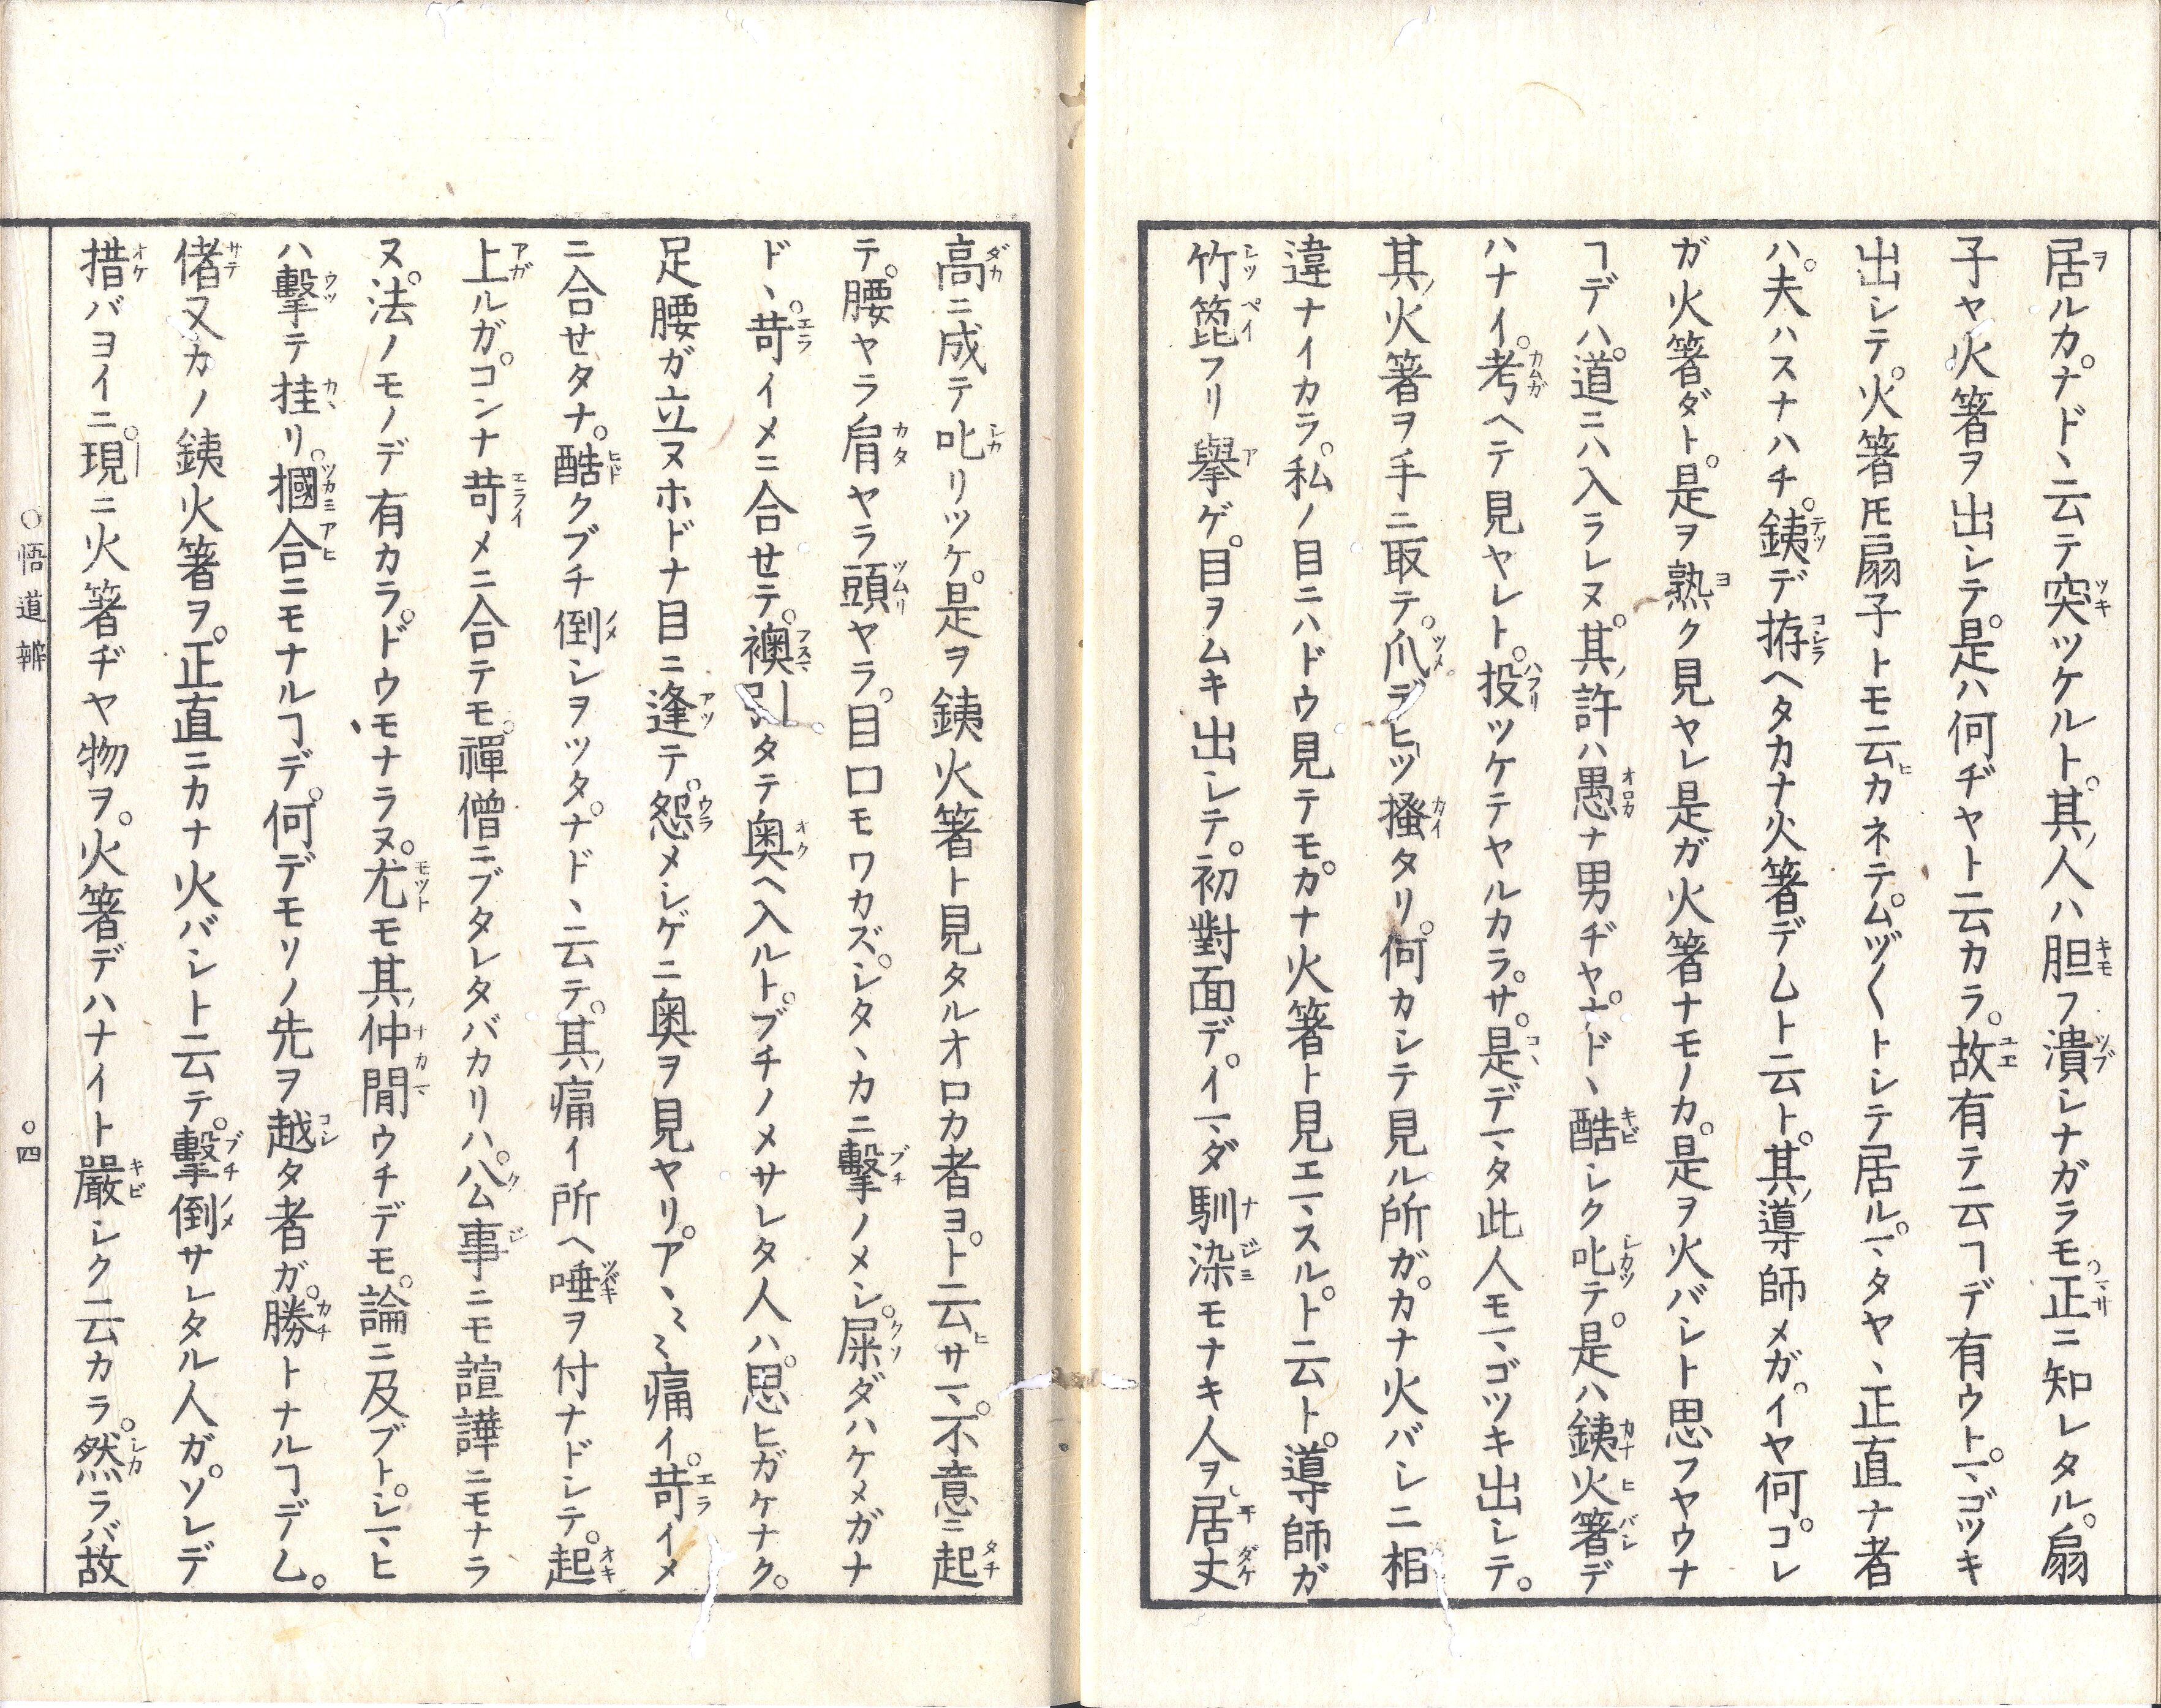 居ルカ。ナド、云テ突ツケルト。其ノ人ハ胆フ潰シナガラモ。正ニ知レタル。扇
子ヤ火箸ヲ出シテ。是ハ何ヂヤト云カラ。故有テ云ヿデ有ウト。マゴツキ
出シテ。火箸𪜈扇子トモ云カネテ。ムヅ〱トシテ居ル。マタヤ、正直ナ者
ハ。夫ハスナハチ。銕デ拵ヘタカナ火箸デムト云ト。其ノ導師メガ。イヤ何。コレ
ガ火箸ダト。是ヲ熟ク見ヤレ是ガ火箸ナモノカ。是ヲ火バシト思フヤウナ
ヿデハ。道ニハ入ラレヌ。其ノ許ハ愚ナ男ヂヤ。ナド、酷シク叱テ。是ハ銕火箸デ
ハナイ。考ヘテ見ヤレト。投ツケテヤルカラ。サ。是デマタ此人モマゴツキ出シテ。
其ノ火箸ヲ手ニ取テ。爪デヒツ搔タリ。何カシテ見ル所ガ。カナ火バシニ相
違ナイカラ。私ノ目ニハドウ見テモ。カナ火箸ト見エマスル。ト云ト。導師ガ
竹篦フリ擧ゲ。目ヲムキ出シテ。初對面デ。イマダ馴染モナキ人ヲ。居丈
高ニ成テ叱リツケ。是ヲ銕火箸ト見タルオロカ者ヨ。ト云サマ。不意ニ起
テ。腰ヤラ肩ヤラ頭ヤラ。目口モワカズ。シタヽカニ擊ノメシ。屎ダハケメガナ
ド、。苛イメニ合せテ。襖引タテ奥ヘ入ルト。ブチノメサレタ人ハ。思ヒガケナク。
足腰ガ立ヌホドナ目ニ逢テ。怨メシゲニ奥ヲ見ヤリ。アヽ〻〻痛イ。苛イメ
ニ合せタナ。酷クブチ倒シヲツタ。ナド、云テ。其ノ痛イ所ヘ唾ヲ付ナドシテ。起
上ルガ。コンナ苛メニ合テモ。禪僧ニブタレタバカリハ。公事ニモ諠譁ニモナラ
ヌ。法ノモノデ有カラ。ドウモナラヌ。尤モ其ノ仲間ウチデモ。論ニ及ブト。シマヒ
ハ擊テ挂リ。摑合ニモナルヿデ。何デモソノ先ヲ越タ者ガ。勝トナルヿデム。
偖又カノ銕火箸ヲ。正直ニカナ火バシト云テ。擊倒サレタル人ガ。ソレデ
措バヨイニ。現ニ火箸ヂヤ物ヲ。火箸デハナイト嚴シク云カラ。然ラバ故
○悟道辨
○四